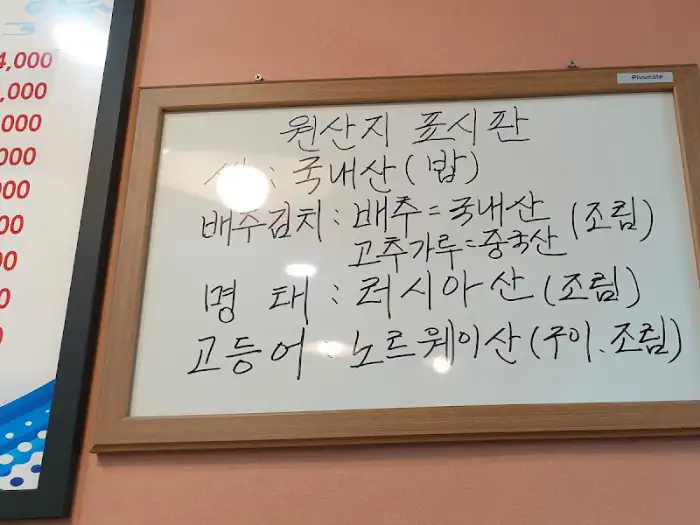 4,000
,000
000
000
000
00
00
0
0
원산지 표시판
: 국내산(밥)
배추김치 : 배추=국내산 (조림)
고추가루=중국산
명 태 : 러시아산(조림)
고등어 : 노르웨이산(구이.조림)